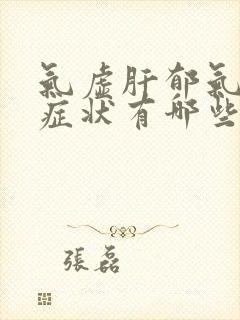 氣虛肝郁氣
症状有哪些
張磊